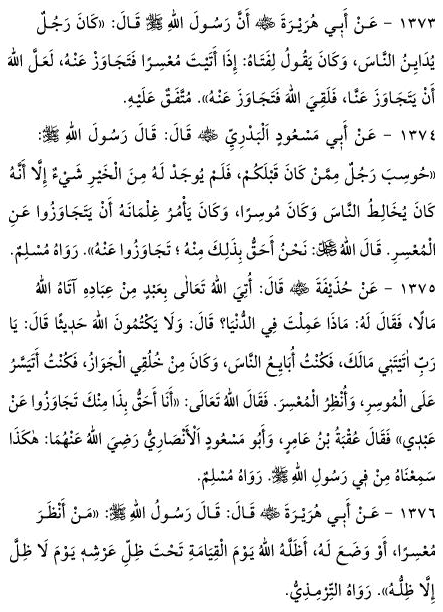 ١٣٧٣ - عَنْ أَبِي هُرَيْرَةَ ﷺ أَنَّ رَسُولَ اللهِ ﷺ قَالَ: «كَانَ رَجُلٌ
يُدَايِنُ النَّاسَ، وَكَانَ يَقُولُ لِفَتَاهُ: إِذَا أَتَيْتَ مُعْسِرًا فَتَجَاوَزْ عَنْهُ، لَعَلَّ اللهَ
أَنْ يَتَجَاوَزَ عَنَّا، فَلَقِيَ اللهَ فَتَجَاوَزَ عَنْهُ». مُتَّفَقٌ عَلَيْهِ.
١٣٧٤ - عَنْ أَبِي مَسْعُودٍ الْبَدْرِيِّ قَالَ: قَالَ رَسُولُ اللهِ ﷺ:
«حُوسِبَ رَجُلٌ مِمَّنْ كَانَ قَبْلَكُمْ، فَلَمْ يُوجَدْ لَهُ مِنَ الْخَيْرِ شَيْءٌ إِلَّا أَنَّهُ
كَانَ يُخَالِطُ النَّاسَ وَكَانَ مُوسِرًا، وَكَانَ يَأْمُرُ غِلْمَانَهُ أَنْ يَتَجَاوَزُوا عَنِ
الْمُعْسِرِ. قَالَ اللهُ: نَحْنُ أَحَقُّ بِذَلِكَ مِنْهُ؛ تَجَاوَزُوا عَنْهُ». رَوَاهُ مُسْلِمٌ.
١٣٧٥ - عَنْ حُذَيْفَةَ قَالَ: أُتِيَ اللهُ تَعَالَى بِعَبْدٍ مِنْ عِبَادِهِ آتَاهُ اللهُ
مَالًا، فَقَالَ لَهُ: مَاذَا عَمِلْتَ فِي الدُّنْيَا؟ قَالَ: وَلَا يَكْتُمُونَ اللهَ حَدِيثًا قَالَ: يَا
رَبِّ اٰتَيْتَنِي مَالَكَ، فَكُنْتُ أُبَايِعُ النَّاسَ، وَكَانَ مِنْ خُلُقِي الْجَوَازُ، فَكُنْتُ أَتَيَسَّرُ
عَلَى الْمُوسِرِ، وَأُنْظِرُ الْمُعْسِرَ. فَقَالَ اللهُ تَعَالَى: «أَنَا أَحَقُّ بِذَا مِنْكَ تَجَاوَزُوا عَنْ
عَبْدِي» فَقَالَ عُقْبَةُ بْنُ عَامِرٍ، وَأَبُو مَسْعُودٍ الْأَنْصَارِيُّ رَضِيَ اللهُ عَنْهُمَا: هٰكَذَا
سَمِعْنَاهُ مِنْ فِي رَسُولِ اللهِ ﷺ. رَوَاهُ مُسْلِمٌ.
١٣٧٦ - عَنْ أَبِي هُرَيْرَةَ قَالَ: قَالَ رَسُولُ اللهِ ﷺ: «مَنْ أَنْظَرَ
مُعْسِرًا، أَوْ وَضَعَ لَهُ، أَظَلَّهُ اللهُ يَوْمَ الْقِيَامَةِ تَحْتَ ظِلِّ عَرْشِهِ يَوْمَ لَا ظِلَّ
إِلَّا ظِلُّهُ». رَوَاهُ التِّرْمِذِيُّ.